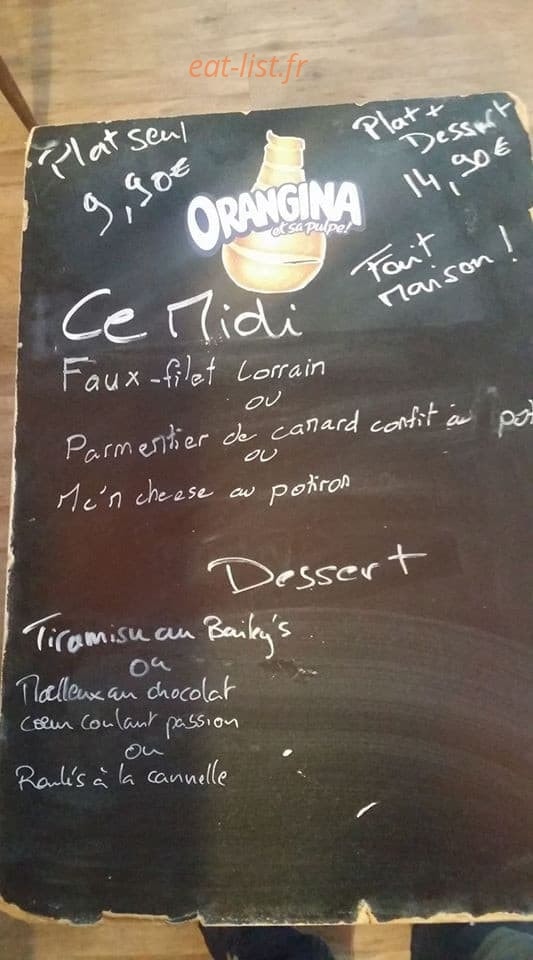 eat-list.fr
Plat seul
9,90€
Plat +
Dessert
14,90€
ORANGINA
et sa pulpe!
Fait
Maison !
Ce Midi
Faux-filet Lorrain
ou
Parmentier de canard confit au pot
ou
Mc'n cheese au potiron
Dessert
Tiramisu au Bailey's
ou
Moelleux au chocolat
cœur coulant passion
ou
Roulés à la cannelle